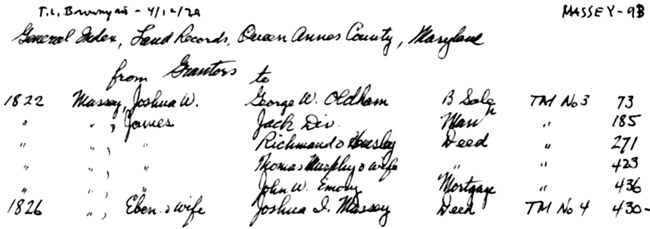 T.L. - 4/12/28 MASSEY - 9B
General Index, Land Records, Queen Annes County, Maryland
from Grantors to
1822 Massey, Joshua W. George W. Oldham B Sale TM No 3 73
" " , James Jack Div. Man " 185
" " , " Richmond o Deed " 271
" " , " Thomas Murphy o wife " " 423
" " , " John W. Emory Mortgage " 436
1826 " , Eben. o wife Joshua I. Massey Deed TM No 4 430-